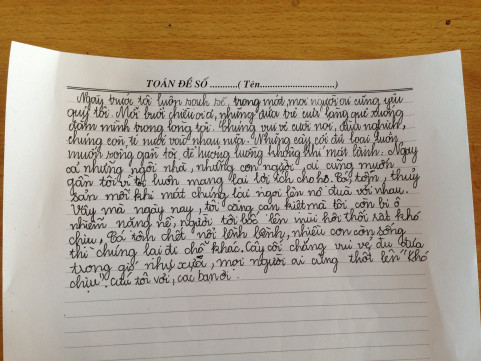 TOÁN ĐỀ SỐ ..........( Tên..............................)
Ngày trước tôi luôn sạch sẽ, trong mát, mọi người ai cũng yêu
quý tôi. Mỗi buổi chiều ơi ả, những đứa trẻ cưới lưng quê xuống
đầm mình trong lòng tôi. Chúng vui vẻ cười nói, đùa nghịch,
chúng còn té nước với nhau nữa. Những cây cối đủ loại luôn
muốn sống gần tôi, để hương luồng không khí mát lành. Ngay
cả những ngôi nhà, những con người ai cũng muốn
gần tôi vì tôi luôn mang lại lợi ích cho họ. Bọ tôm, thủy
sản mỗi khi mát chúng lại ngoi lên nô đùa với nhau.
Vậy mà ngày nay, tôi càng cạn kiệt mà tôi còn bị ô
nhiễm nặng nề, người tôi bốc lên mùi hôi thối rất khó
chịu, Cá tôm chết nổi lềnh bềnh, nhiều con còn sống
thì chúng lại đi chỗ khác. Cây cối chẳng vui vẻ đu đưa
trong gió như xưa, mọi người ai cũng thốt lên "khó
chịu". Cứu tôi với, các bạn ơi